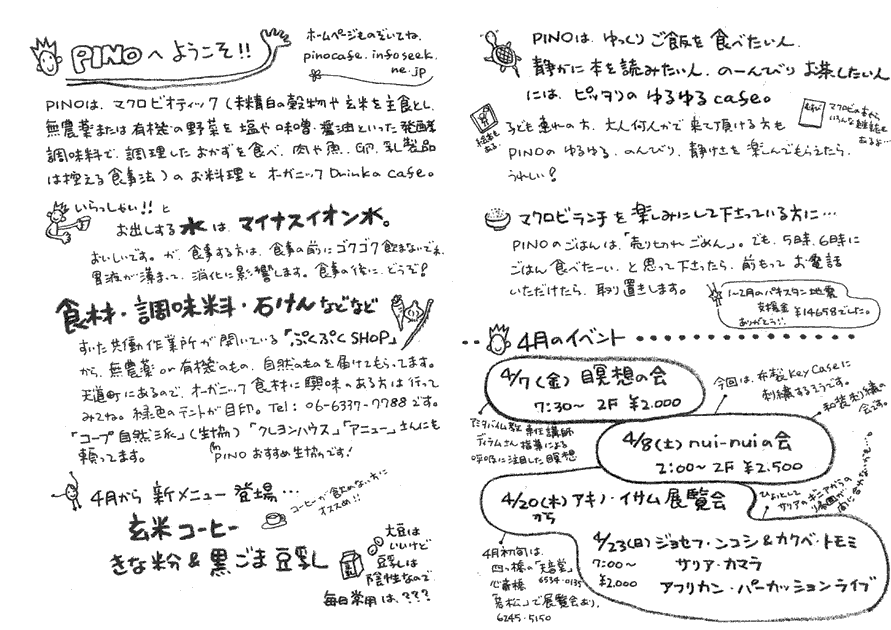 PINOへようこそ!!
ホームページものぞいてね。
pinocafe.infoseek.
ne.jp
PINOは、マクロビオティック(未精白の穀物や玄米を主食とし、
無農薬または有機の野菜を塩や味噌・醤油といった発酵
調味料で、調理したおかずを食べ、肉や魚、卵、乳製品
は控える食事法)のお料理とオーガニックDrinkのcafe。
いらっしゃい!!と
お出しする水は、マイナスイオン水。
おいしいです。が、食事する方は、食事の前にゴクゴク飲まないでネ。
胃液が薄まって、消化に影響します。食事の後に、どうぞ!
食材・調味料・石けんなどなど
すいた共働作業所が開いている「ぷくぷくSHOP」
から、無農薬or有機のもの、自然のものを届けてもらってます。
天道町にあるので、オーガニック食材に興味のある方は行って
みてね。緑色のテントが目印。Tel: 06-6337-7788です。
「コープ自然派」(生協)「クレヨンハウス」「アニュー」さんにも
頼ってます。
PINOおすすめ生協です!
4月から新メニュー登場…
コーヒーが飲めない方に
オススメ!!
玄米コーヒー
きな粉&黒ごま豆乳
大豆は
いいけど
豆乳は
陰性なので
毎日常用は、???
PINOは、ゆっくりご飯を食べたい人、
静かに本を読みたい人、のーんびりお茶したい人
には、ピッタリのゆるゆるcafe。
絵本も
ある。
マクロビの本やら
いろんな雑誌も
あるよ…
子ども連れの方、大人何人かで来て頂ける方も
PINOのゆるゆる、のんびり、静けさを楽しんでもらえたら、
うれしい!
マクロビランチを楽しみにして下さっている方に…
PINOのごはんは、「売り切れごめん」。でも、5時、6時に
ごはん食べたーい、と思って下さったら、前もってお電話
いただけたら、取り置きします。
1~2月のパキスタン地震
支援金 ¥14658でした。
ありがとう!!
4月のイベント
4/7(金)瞑想の会
7:30~ 2F ¥2.000
専任講師
ディラムさん指導による
呼吸に注目した瞑想
今回は、布製Key Caseに
刺繍するそうです。
和装刺繍の
会詩。
4/8(土)nui-nuiの会
2:00~ 2F ¥2.500
4/20(木)アキノ・イサム展覧会
から
ひょっとして
サリアのギニアからの
帰国が
間に合わないかも…。
4月初旬は、
四ツ橋の「天音堂」
心斎橋 6534-0135
「若松」で展覧会あり。
6245-5150
4/23(日)ジョセフ・ンコシ&カクベ・トモミ
7:00~ サリア・カマラ
¥2.000 アフリカン・パーカッションライブ